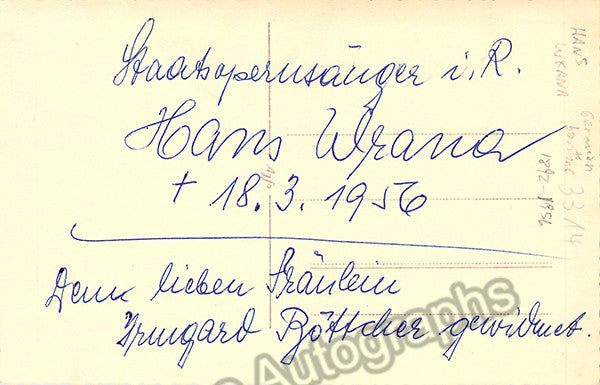 Staatsopernsänger i. R.
Hans Wrana
† 18. 3. 1956
Dem lieben Fräulein
Irmgard Böttcher gewidmet.
HANS
WRANA
German
1892-1956
3314
Autographs